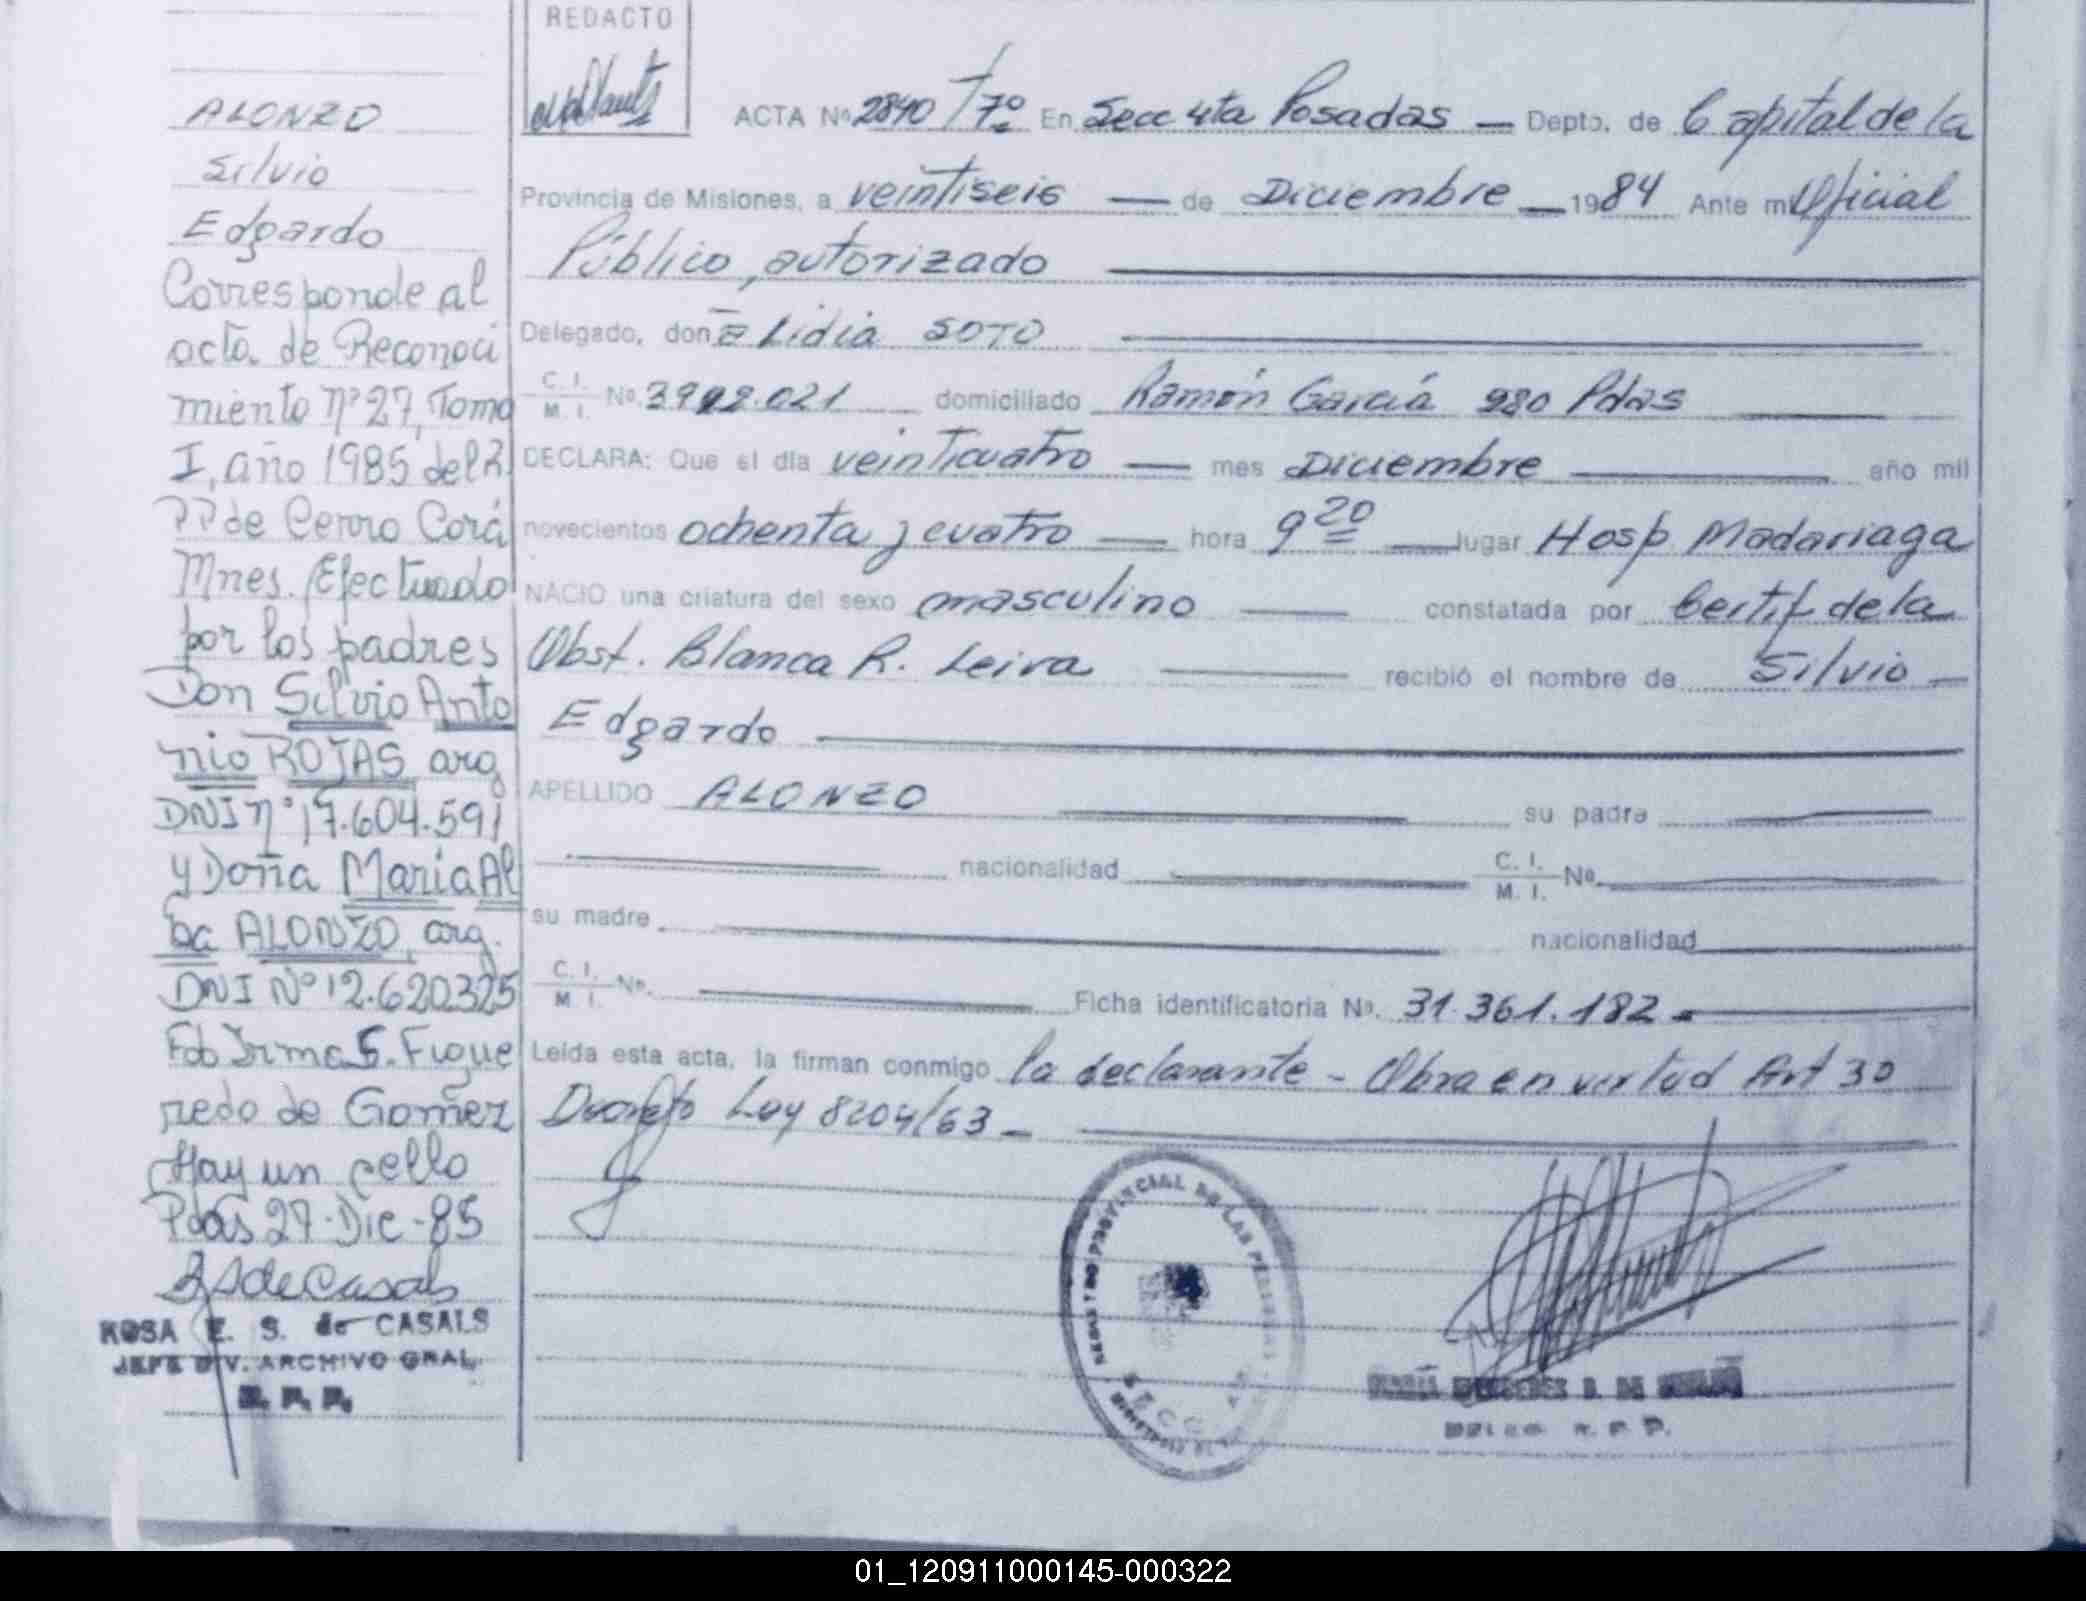 ALONZO
Silvio
Edgardo
Corresponde al
acta de Reconoci
miento nº 27, Tomo
I, año 1985 del R
PP de Cerro Corá
Mnes. Efectuado
por los padres
Don Silvio Anto
nio ROJAS arg
DNI nº 17.604.591
y Doña María Al
ba ALONZO, arg.
DNI Nº 12.620325
Fdo Irma S. Figue
redo de Gomez
Hay un sello
Pdas 27-Dic-85
ROSA E. S. de CASALS
JEFE DIV. ARCHIVO GRAL.
R. P. P.
REDACTO
ACTA Nº 2840 / 7º En Secc 4ta Posadas — Depto. de Capital de la
Provincia de Misiones, a veintiseis — de Diciembre — 1984 Ante mi Oficial
Público, autorizado
Delegado, doña Lidia SOTO
C. I. / M. I. Nº 3992.021 domiciliado Ramón Garcia 980 Pdas
DECLARA: Que el día veinticuatro — mes Diciembre — año mil
novecientos ochenta y cuatro — hora 9 20 — lugar Hosp Madariaga
NACIO una criatura del sexo masculino — constatada por Certif de la
Obst. Blanca R. Leiva — recibió el nombre de Silvio —
Edgardo
APELLIDO ALONZO — su padre
nacionalidad — C. I. / M. I. Nº
su madre — nacionalidad
C. I. / M. I. Nº. — Ficha identificatoria Nº. 31.361.182.-
Leída esta acta, la firman conmigo la declarante - Obra en virtud Art 30
Decreto Ley 8204/63 -
REGISTRO PROVINCIAL DE LAS PERSONAS
SECC
01_120911000145-000322